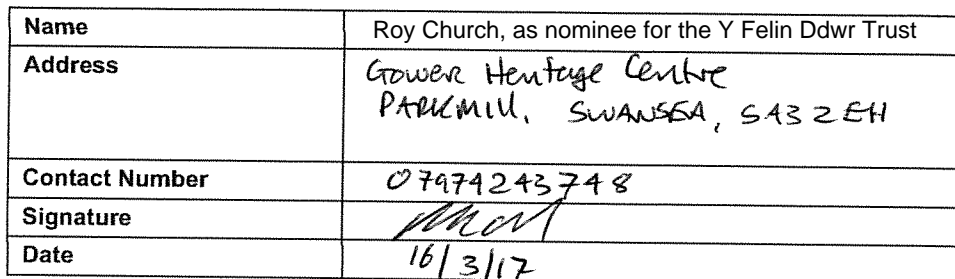 Name Roy Church, as nominee for the Y Felin Ddwr Trust
Address Gower Heritage Centre
PARKMILL, SWANSEA, SA3 2EH
Contact Number 07974243748
Signature
Date 16/3/17